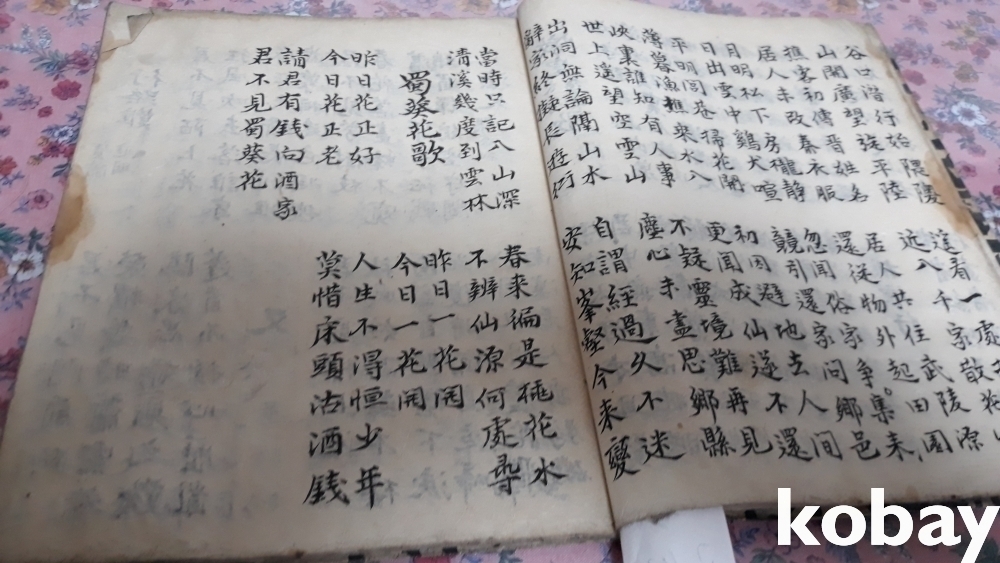 谷口潛行始隈隩
山開廣望旋平陸
遠看一處
近入千家散花
樵客初傳晉姓名
居人未改秦衣服
居人共住武陵源
還從物外起田園
月明松下房櫳靜
日出雲中雞犬喧
忽聞俗家爭集來
競引還家問鄉邑
平明閭巷掃花開
薄暮漁樵乘水入
初因避地去人間
更聞成仙遂不還
峽裏誰知有人事
世上遠望空雲山
不疑靈境難再見
塵心未盡思鄉縣
出洞無論隔山水
辭家終擬長遊衍
自謂經過久不迷
安知峯壑今來變
當時只記入山深
清溪幾度到雲林
春來徧是桃花水
不辨仙源何處尋
蜀葵花歌
昨日花正好
今日花正老
昨日一花開
今日一花開
請君有錢向酒家
君不見蜀葵花
人生不得恒少年
莫惜床頭沽酒錢
kobay